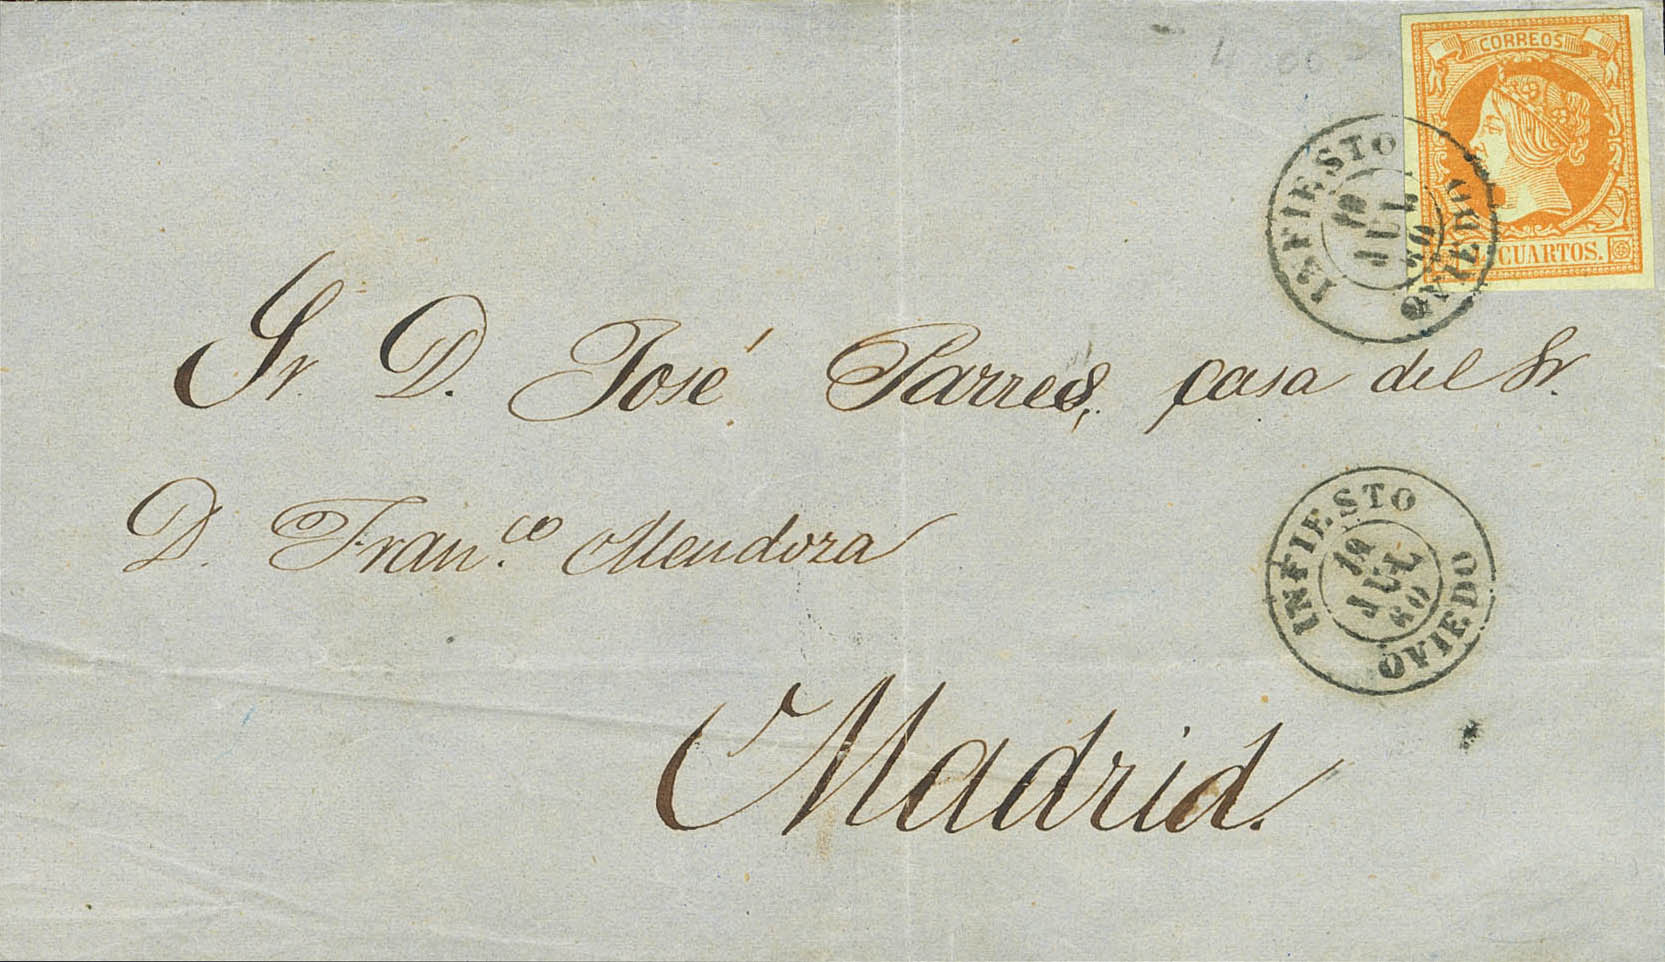 CORREOS
CUARTOS.
INFIESTO
JUL
OVIEDO
Sr. D. José Parres, casa del Sr.
D. Fran.co Mendoza
INFIESTO
JUL
60
OVIEDO
Madrid.